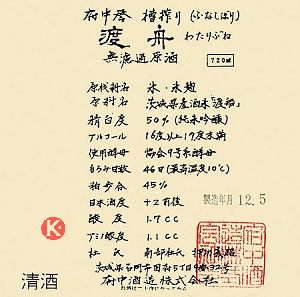 府中誉 槽搾り(ふなしぼり)
渡舟 わたりぶね
無濾過原酒 720ml
原材料名 米・米麹
原料名 茨城県産酒米「渡船」
精白度 50%(純米吟醸)
アルコール 16度以上17度未満
使用酵母 協会9号系酵母
もろみ日数 46日(最高温度10℃)
粕歩合 45%
日本酒度 +2前後
酸度 1.7CC
アミノ酸度 1.1CC
製造年月 12.5
杜氏 南部杜氏
K
茨城県石岡市国府5丁目
清酒
府中酒造株式会社